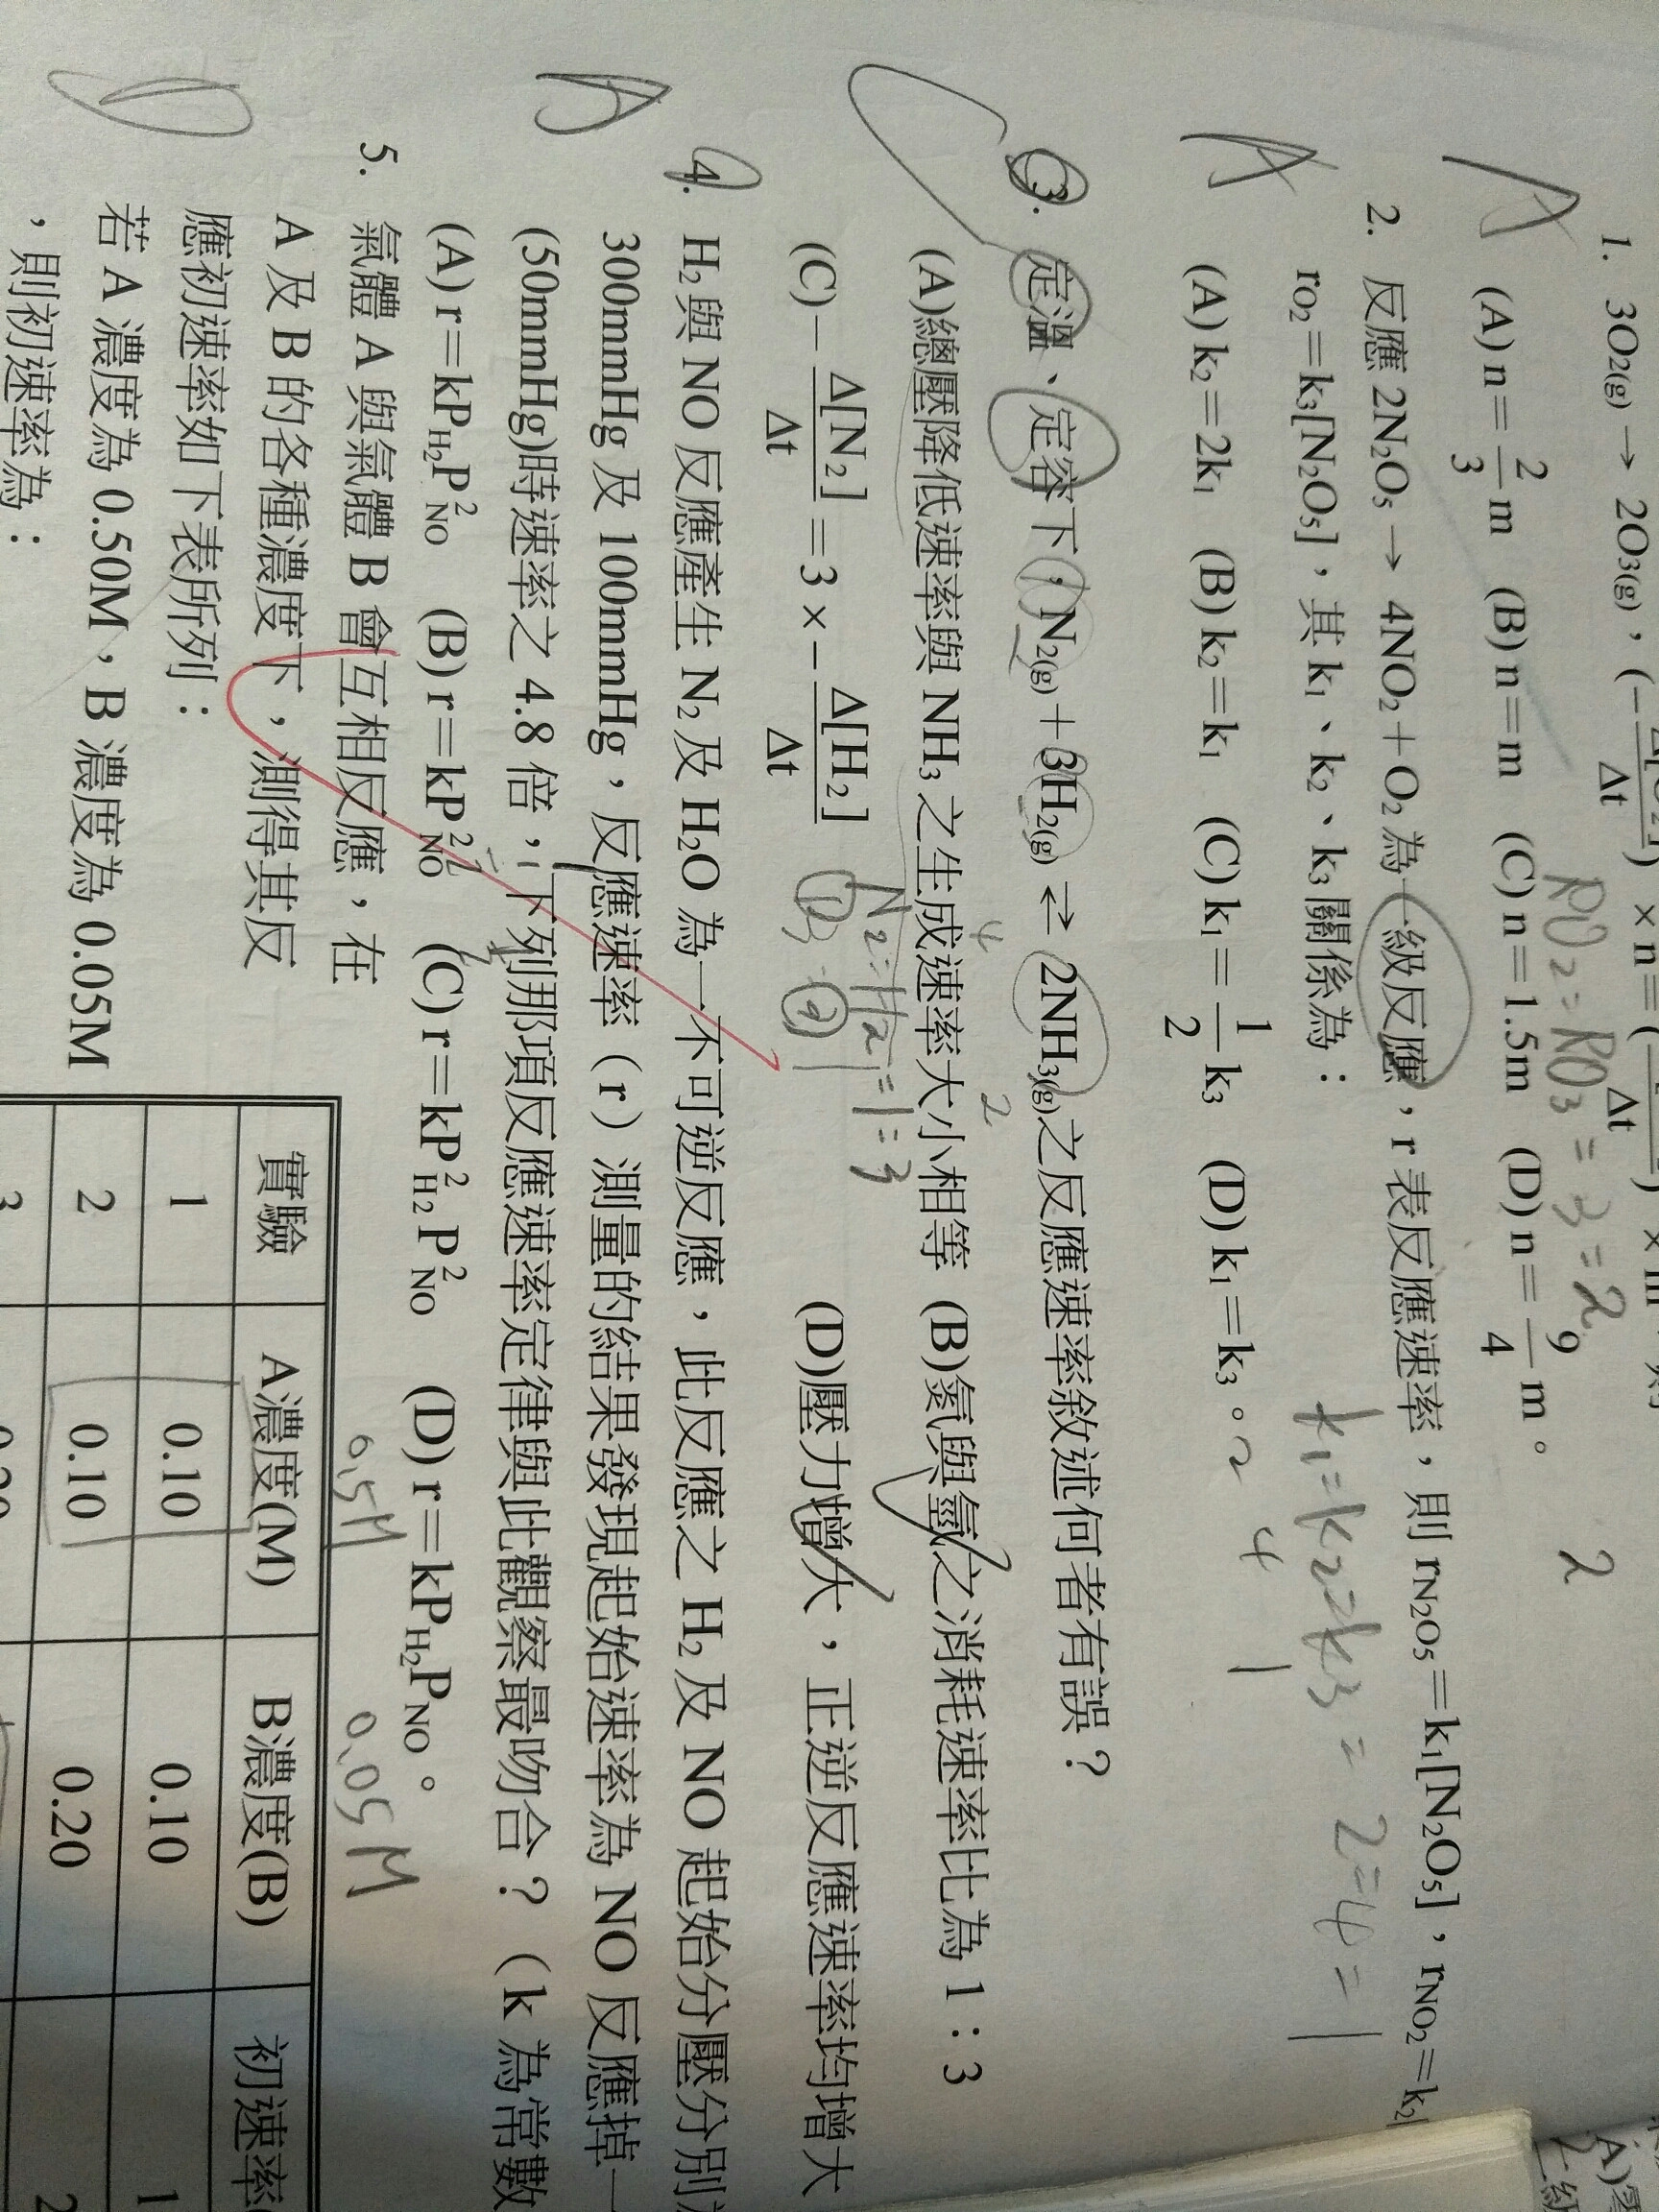 1. 3O₂(g) → 2O₃(g),(−Δ[O₂]/Δt) × n=(
(A) n=2/3 m (B) n=m (C) n=1.5m (D) n=9/4 m。
RO₂=RO₃=3=2
2
A
2. 反應 2N₂O₅ → 4NO₂+O₂ 為一級反應,r 表反應速率,則 rN₂O₅=k₁[N₂O₅],rNO₂=k₂
rO₂=k₃[N₂O₅],其 k₁、k₂、k₃ 關係為:
k₁=k₂=k₃=2=4=1
A
(A) k₂=2k₁ (B) k₂=k₁ (C) k₁=1/2 k₃ (D) k₁=k₃。
2 4 1
C
3. 定溫、定容下,N₂(g)+3H₂(g) ⇄ 2NH₃(g)之反應速率敘述何者有誤?
4 2
(A)總壓降低速率與 NH₃ 之生成速率大小相等 (B)氮與氫之消耗速率比為 1:3
(C)−Δ[N₂]/Δt=3×−Δ[H₂]/Δt (D)壓力增大,正逆反應速率均增大
N₂=H₂=1=3
A
4. H₂ 與 NO 反應產生 N₂ 及 H₂O 為一不可逆反應,此反應之 H₂ 及 NO 起始分壓分別
300mmHg 及 100mmHg,反應速率(r)測量的結果發現起始速率為 NO 反應掉一
(50mmHg)時速率之 4.8 倍,下列那項反應速率定律與此觀察最吻合?(k 為常數
(A) r=kPH₂P²NO (B) r=kP²NO (C) r=kP²H₂P²NO (D) r=kPH₂PNO。
D
5. 氣體 A 與氣體 B 會互相反應,在
A 及 B 的各種濃度下,測得其反
應初速率如下表所列:
若 A 濃度為 0.50M,B 濃度為 0.05M
,則初速率為:
0.5M 0.05M
實驗 A濃度(M) B濃度(B) 初速率
1 0.10 0.10 1
2 0.10 0.20 2
3